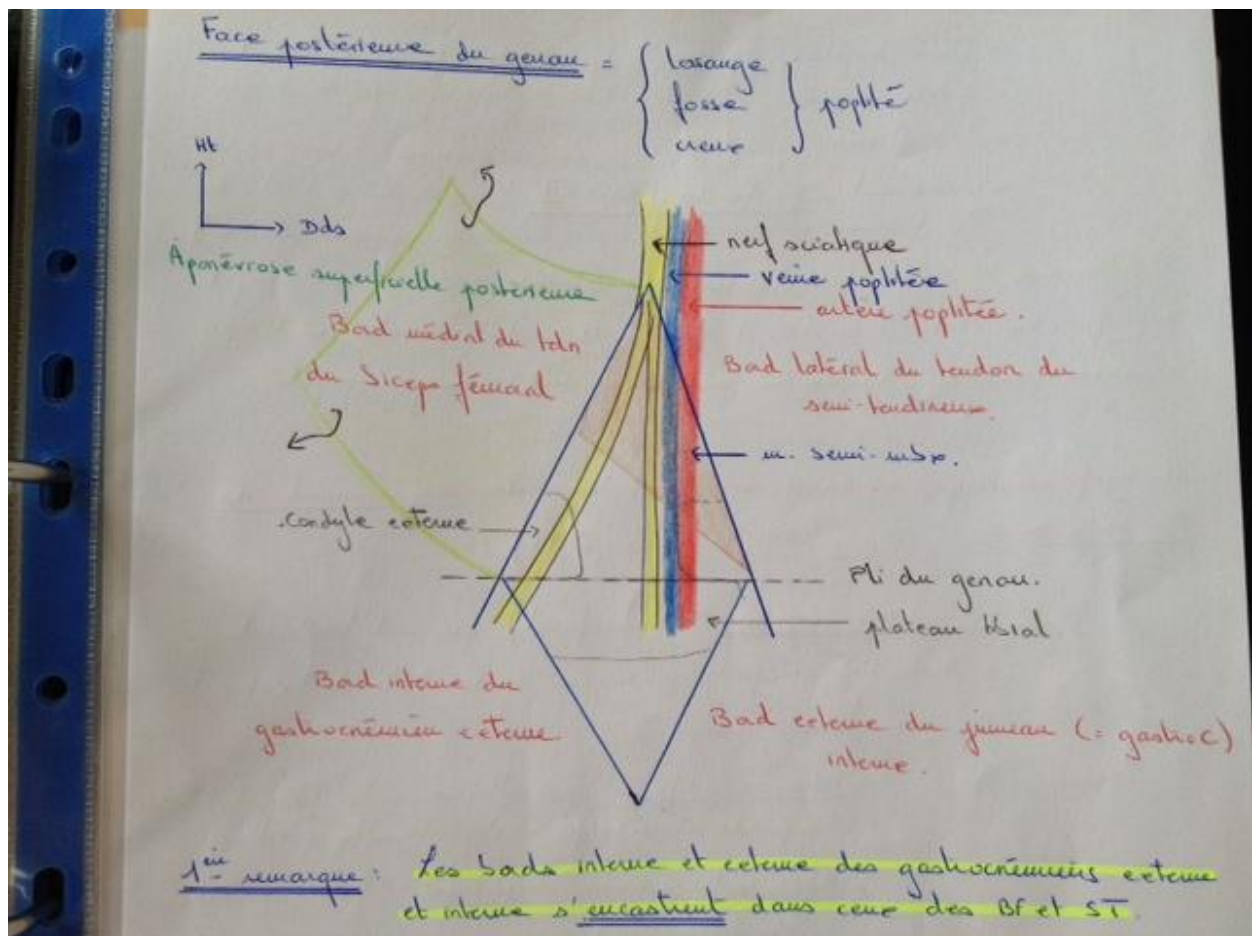 Face postérieure du genou = { losange
fosse
creux } poplité
Ht
Dds
Aponévrose superficielle postérieure
Bord médial du tdn
du biceps fémoral
nerf sciatique
veine poplitée
artère poplitée.
Bord latéral du tendon du
semi-tendineux.
m. semi-mbx.
condyle externe
Pli du genou.
plateau tibial
Bord interne du
gastrocnémien externe
Bord externe du jumeau (= gastroC)
interne.
1ère remarque : Les bords interne et externe des gastrocnémiens externe
et interne s'encastrent dans ceux des BF et ST.